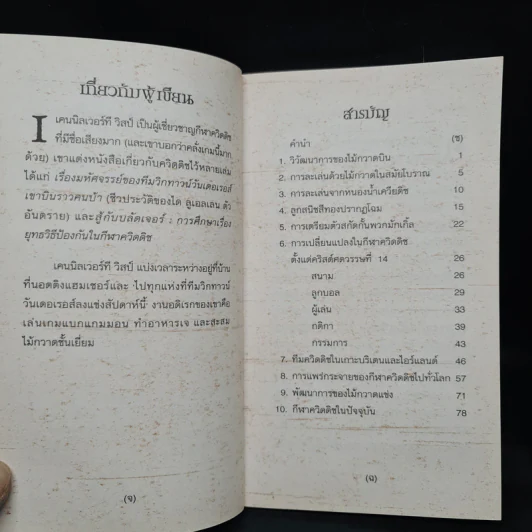 เกี่ยวกับผู้เขียน
เคนนิลเวอร์ที วิสป์ เป็นผู้เชี่ยวชาญกีฬาควิดดิช
ที่มีชื่อเสียงมาก (และเขาบอกว่าคลั่งเกมนี้มาก
ด้วย) เขาแต่งหนังสือเกี่ยวกับควิดดิชไว้หลายเล่ม
ได้แก่ เรื่องมหัศจรรย์ของทีมวิกทาวน์วันเดอเรอส์
เขาบินราวคนบ้า (ชีวประวัติของได ลูเอลเลน ตัว
อันตราย) และสู้กับบลัดเจอร์ : การศึกษาเรื่อง
ยุทธวิธีป้องกันในกีฬาควิดดิช
เคนนิลเวอร์ที วิสป์ แบ่งเวลาระหว่างอยู่ที่บ้าน
ที่นอตติงแฮมเชอร์และ ไปทุกแห่งที่ทีมวิกทาวน์
วันเดอเรอส์ลงแข่งสัปดาห์นี้ งานอดิเรกของเขาคือ
เล่นเกมแบกแกมมอน ทำอาหารเจ และสะสม
ไม้กวาดชั้นเยี่ยม
(จ)
สารบัญ
คำนำ (ซ)
1. วิวัฒนาการของไม้กวาดบิน 1
2. การละเล่นด้วยไม้กวาดในสมัยโบราณ 5
3. การละเล่นจากหนองน้ำเควียดิช 10
4. ลูกสนิชสีทองปรากฏโฉม 15
5. การเตรียมตัวสกัดกั้นพวกมักเกิ้ล 22
6. การเปลี่ยนแปลงในกีฬาควิดดิช
ตั้งแต่คริสต์ศตวรรษที่ 14 26
สนาม 26
ลูกบอล 29
ผู้เล่น 33
กติกา 39
กรรมการ 43
7. ทีมควิดดิชในเกาะบริเตนและไอร์แลนด์ 46
8. การแพร่กระจายของกีฬาควิดดิชไปทั่วโลก 57
9. พัฒนาการของไม้กวาดแข่ง 71
10. กีฬาควิดดิชในปัจจุบัน 78
(ฉ)